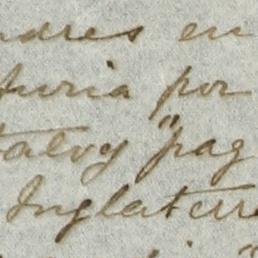 ndres en
furia por
talvy "pag
Inglaterr